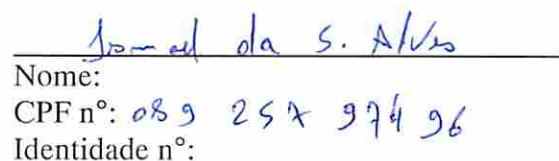 Ismael da S. Alves
Nome:
CPF nº: 089 257 974 96
Identidade nº: